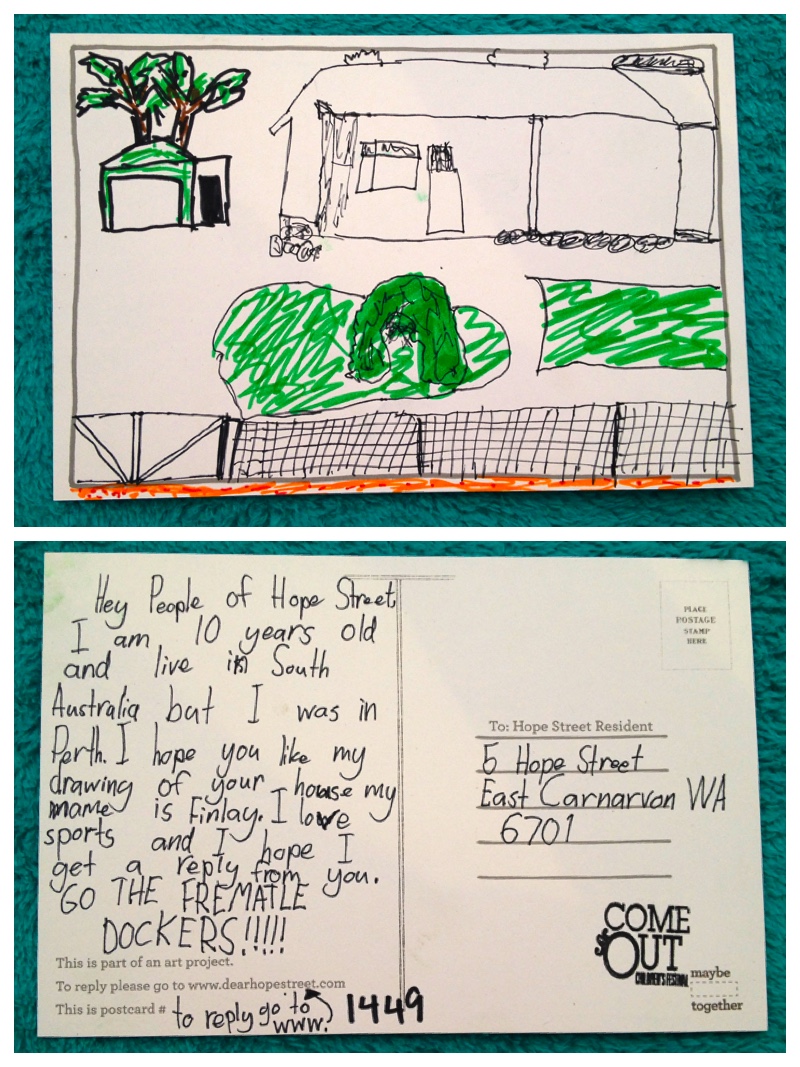 Hey People of Hope Street
I am 10 years old
and live in South
Australia but I was in
Perth. I hope you like my
drawing of your house my
mame is Finlay. I love
sports and I hope I
get a reply from you.
GO THE FREMATLE
DOCKERS!!!!!
This is part of an art project.
To reply please go to www.dearhopestreet.com
This is postcard # to reply go to
www. 1449
PLACE
POSTAGE
STAMP
HERE
To: Hope Street Resident
5 Hope Street
East Carnarvon WA
6701
COME
OUT
CHILDREN'S FESTIVAL
maybe
together